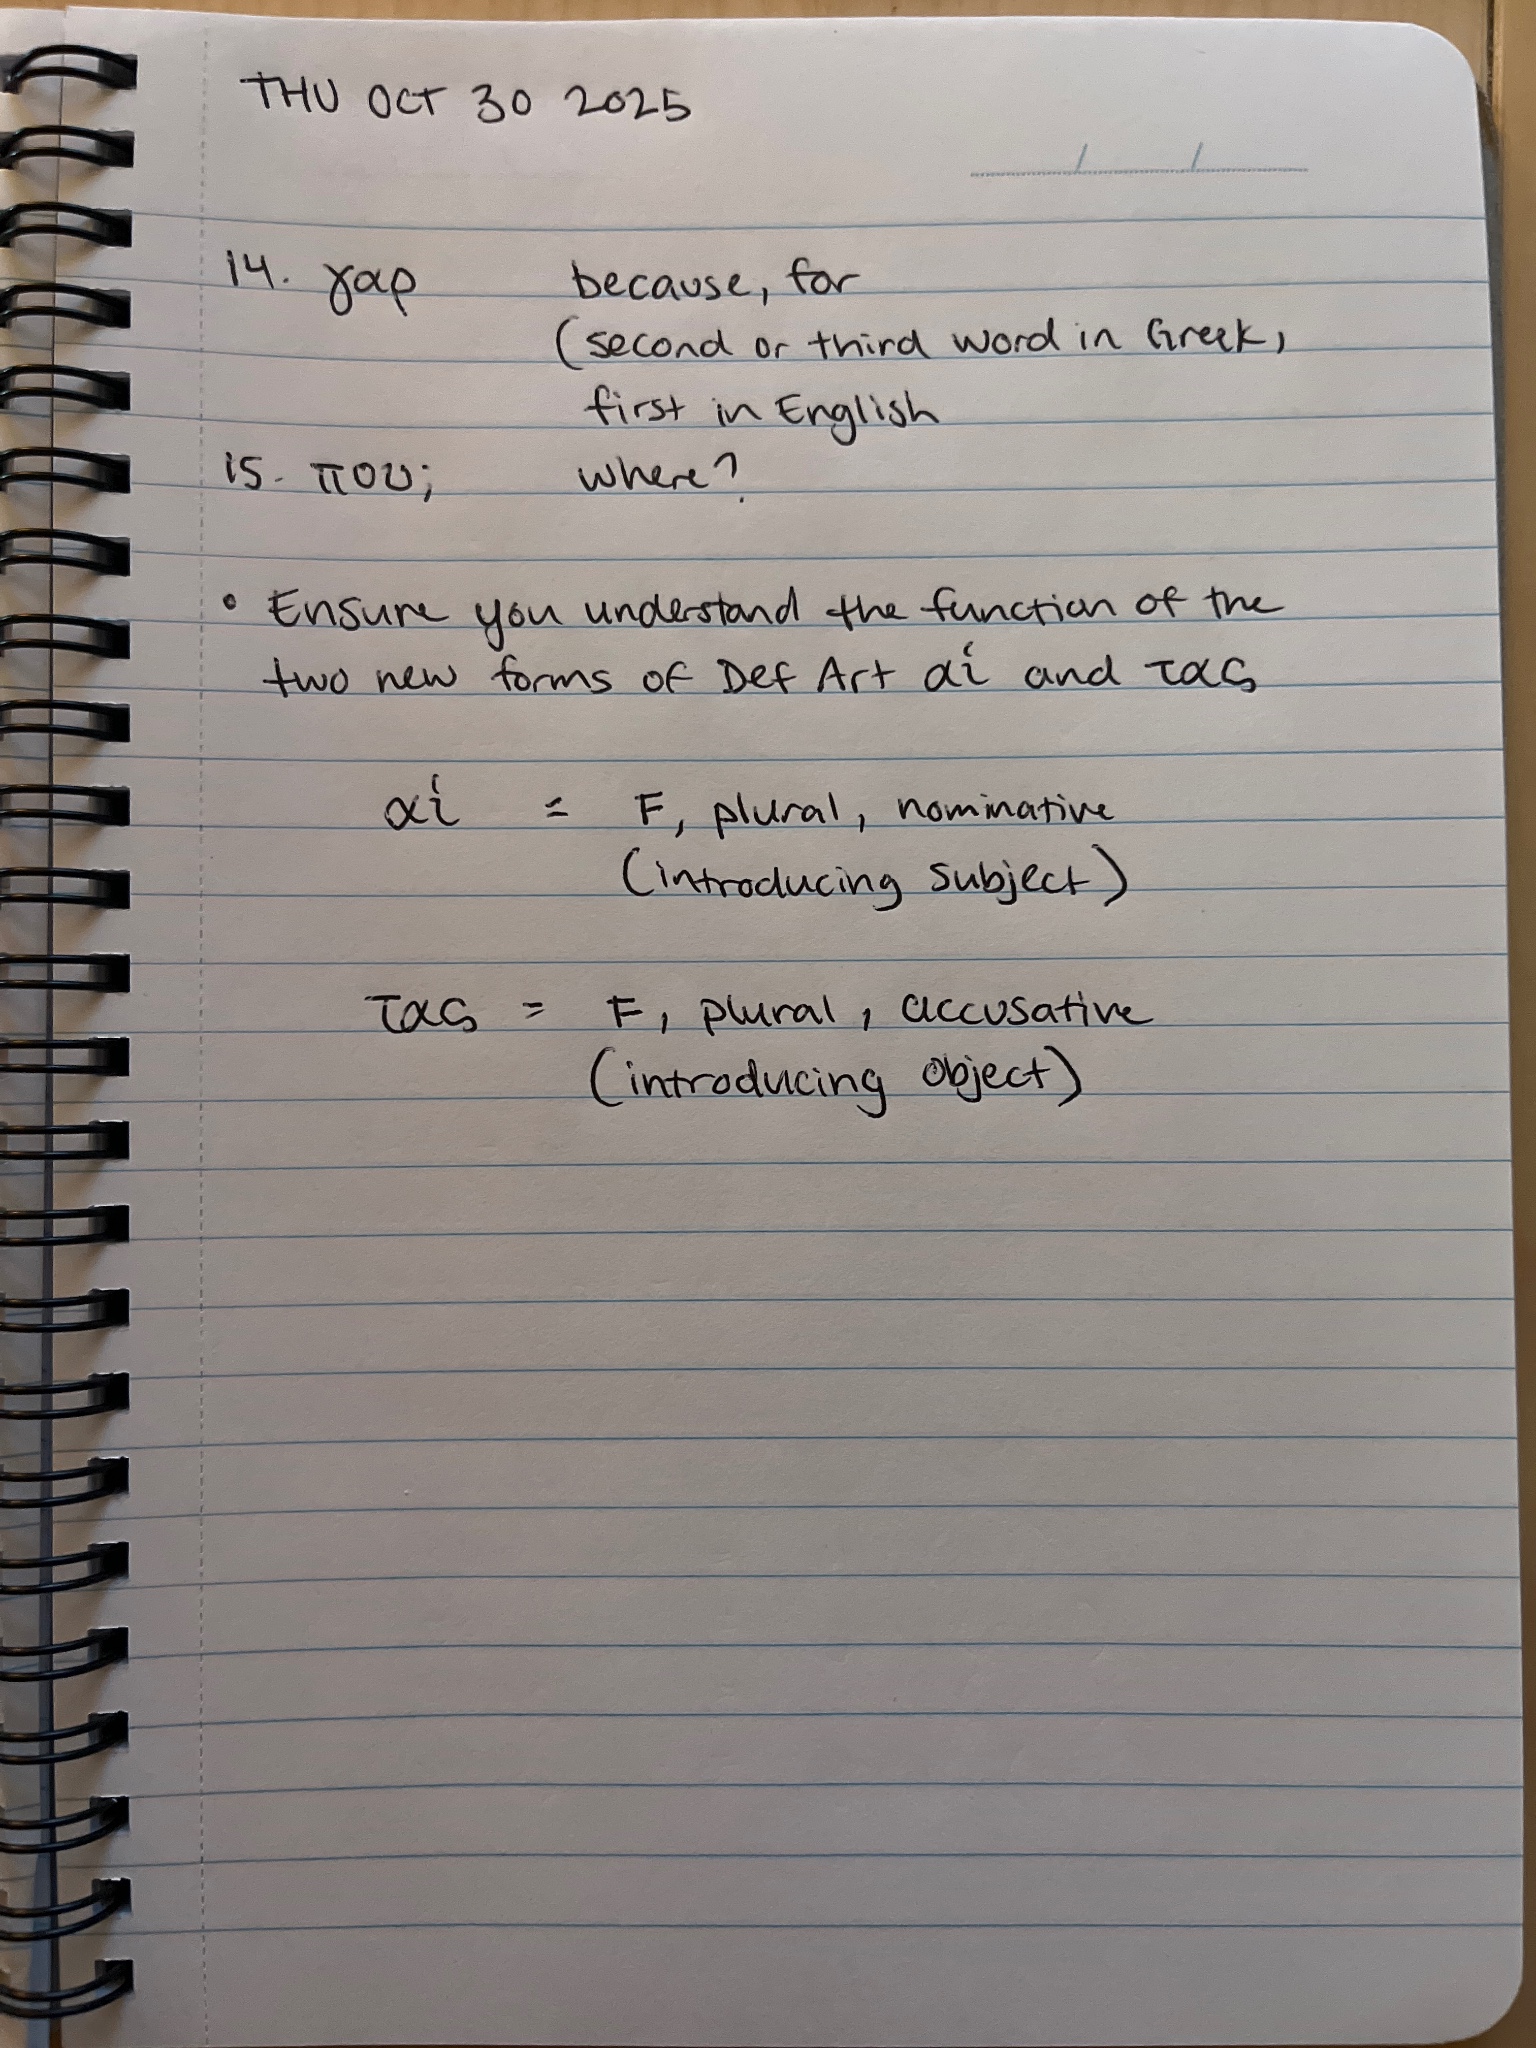 THU OCT 30 2025
14. γαρ because, for
(second or third word in Greek,
first in English
15. που; where?
• Ensure you understand the function of the
two new forms of Def Art αἱ and τας
αἱ = F, plural, nominative
(introducing subject)
τας = F, plural, accusative
(introducing object)